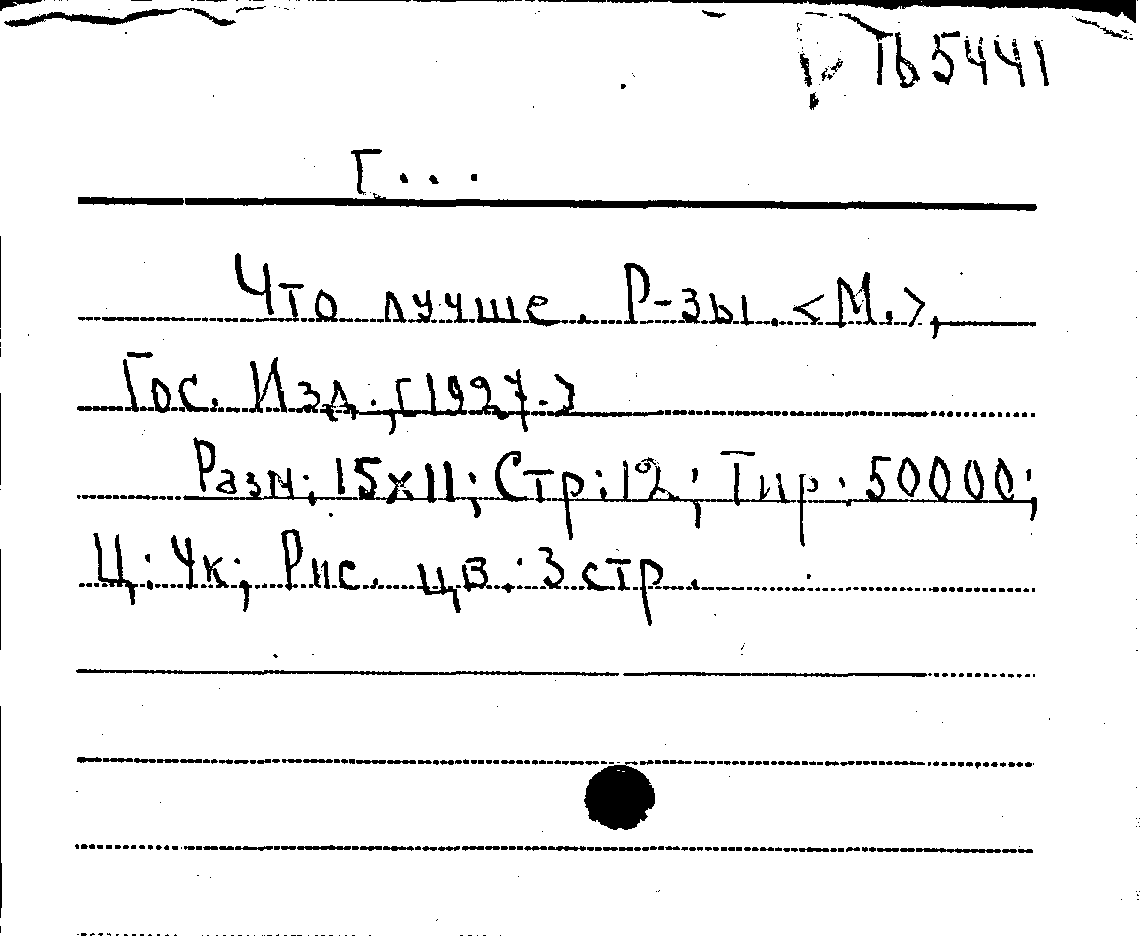 Пб5441
Г...
Что лучше. Р-зы. <М.>,
Гос. Изд., [1927.]
Разм: 15х11; Стр: 12; Тир: 50000;
Ц: 4к; Рис. цв.: 3 стр.